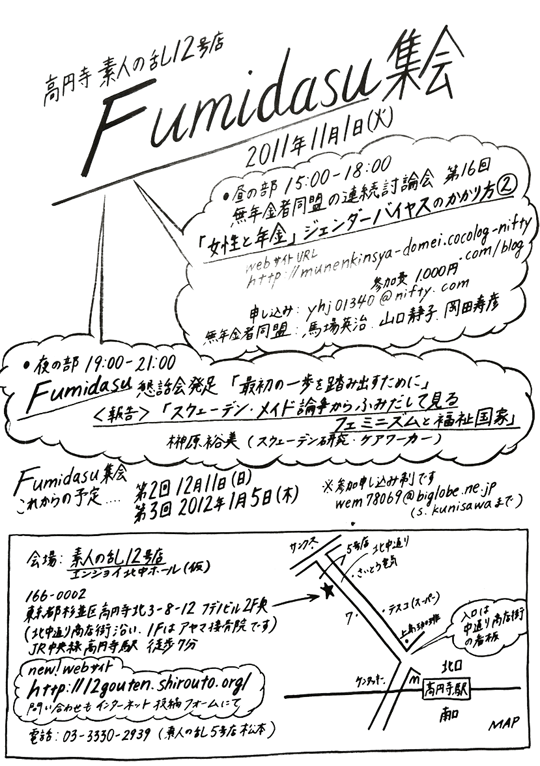 高円寺 素人の乱12号店
Fumidasu集会
2011年11月1日(火)
・昼の部 15:00-18:00
無年金者同盟の連続討論会 第16回
「女性と年金」ジェンダーバイヤスのかかり方②
webサイトURL
http://munenkinsya-domei.cocolog-nifty
.com/blog
参加費 1,000円
申し込み: yhj01340@nifty.com
無年金者同盟: 馬場英治. 山口静子. 岡田寿彦
・夜の部 19:00-21:00
Fumidasu 懇話会発足「最初の一歩を踏み出すために」
<報告>「スウェーデン・メイド論争からふみだして見る
フェミニズムと福祉国家」
榊原裕美 (スウェーデン研究・ケアワーカー)
Fumidasu集会
これからの予定....
第2回 12月11日(日)
第3回 2012年1月5日(木)
※参加申し込み制です
wem78069@biglobe.ne.jp
(s.kunisawaまで)
会場: 素人の乱12号店
エンジョイ北中ホール(仮)
166-0002
東京都杉並区高円寺北3-8-12 フデノビル2F奥
(北中通り商店街沿い. 1Fはアヤマ接骨院です)
JR中央線 高円寺駅 徒歩7分
new! webサイト
http://12gouten.shirouto.org/
問い合わせもインターネット投稿フォームにて
電話: 03-3330-2939 (素人の乱5号店 松本)
サンクス
5号店
北中通り
さいとう電気
7
テスコ(スーパー)
入口は
中通り商店街
の看板
ケンタッキー
m
北口
高円寺駅
南口
MAP